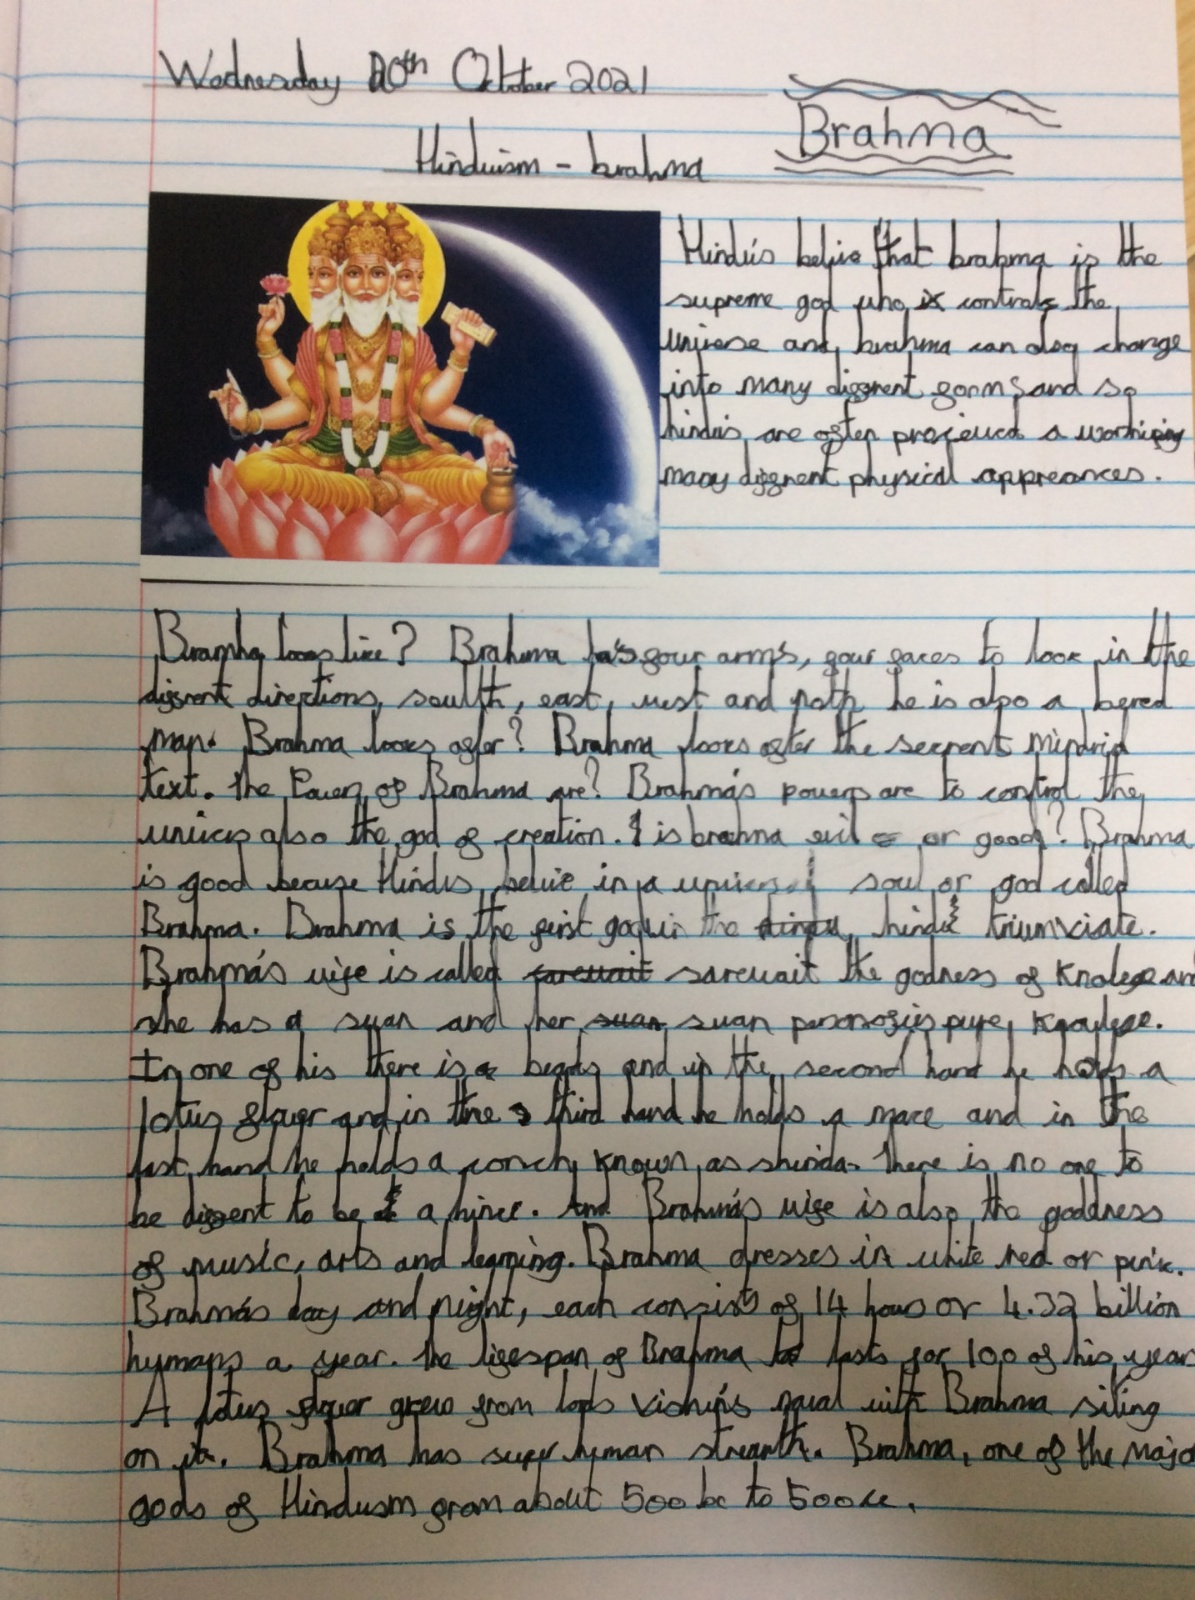 Wednesday 20th October 2021
Brahma
Hinduism - brahma
Hindu's belive that brahma is the
supreme god who controls the
universe and, brahma can also change
into many diffrent forms and so
hindu's are often a worshiping
many diffrent physical apprearances.
Bramha looks like? Brahma has four arms, four faces to look in the
diffrent directions, soulth, east, west and noth he is also a bered
man. Brahma looks after? Brahma looks after the serpent
text. the Powers of Brahma are? Brahma's powers are to control the
also the god of creation. is brahma evil or good? Brahma
is good because Hindus belive in a soul or god called
Brahma. Brahma is the first god in the hindu triumviate.
Brahma's wife is called sarewait the godness of
she has a swan and her swan pure
In one of his there is a beads and in the second hand he holds a
lotus flower and in the third hand he holds a mace and in the
last hand he holds a conch known as There is no one to
be diffrent to be a And Brahma's wife is also the goddness
of music, arts and learning. Brahma dresses in white red or pink.
Brahma's day and night, each consists of 14 hours or 4.32 billion
humans a year. The lifespan of Brahma lasts for 100 of his year
A lotus flower grew from lords Vishnu's naval with Brahma siting
on it. Brahma has super human Brahma, one of the major
gods of Hinduism from about 500 bc to 500 ce.